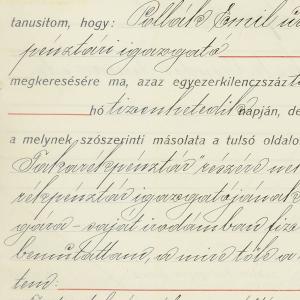 tanusitom, hogy: Pollák Emil
pénztári igazgató
megkeresésére ma, azaz egyezerkilenczszáz
hó tizenhetedik napján, de
a melynek szószerinti másolata a tulsó oldalo
Takarékpénztár" részére
rékpénztár igazgatójának
gára - saját irodámban fize
bemutattam, a mire tőle a
tem: